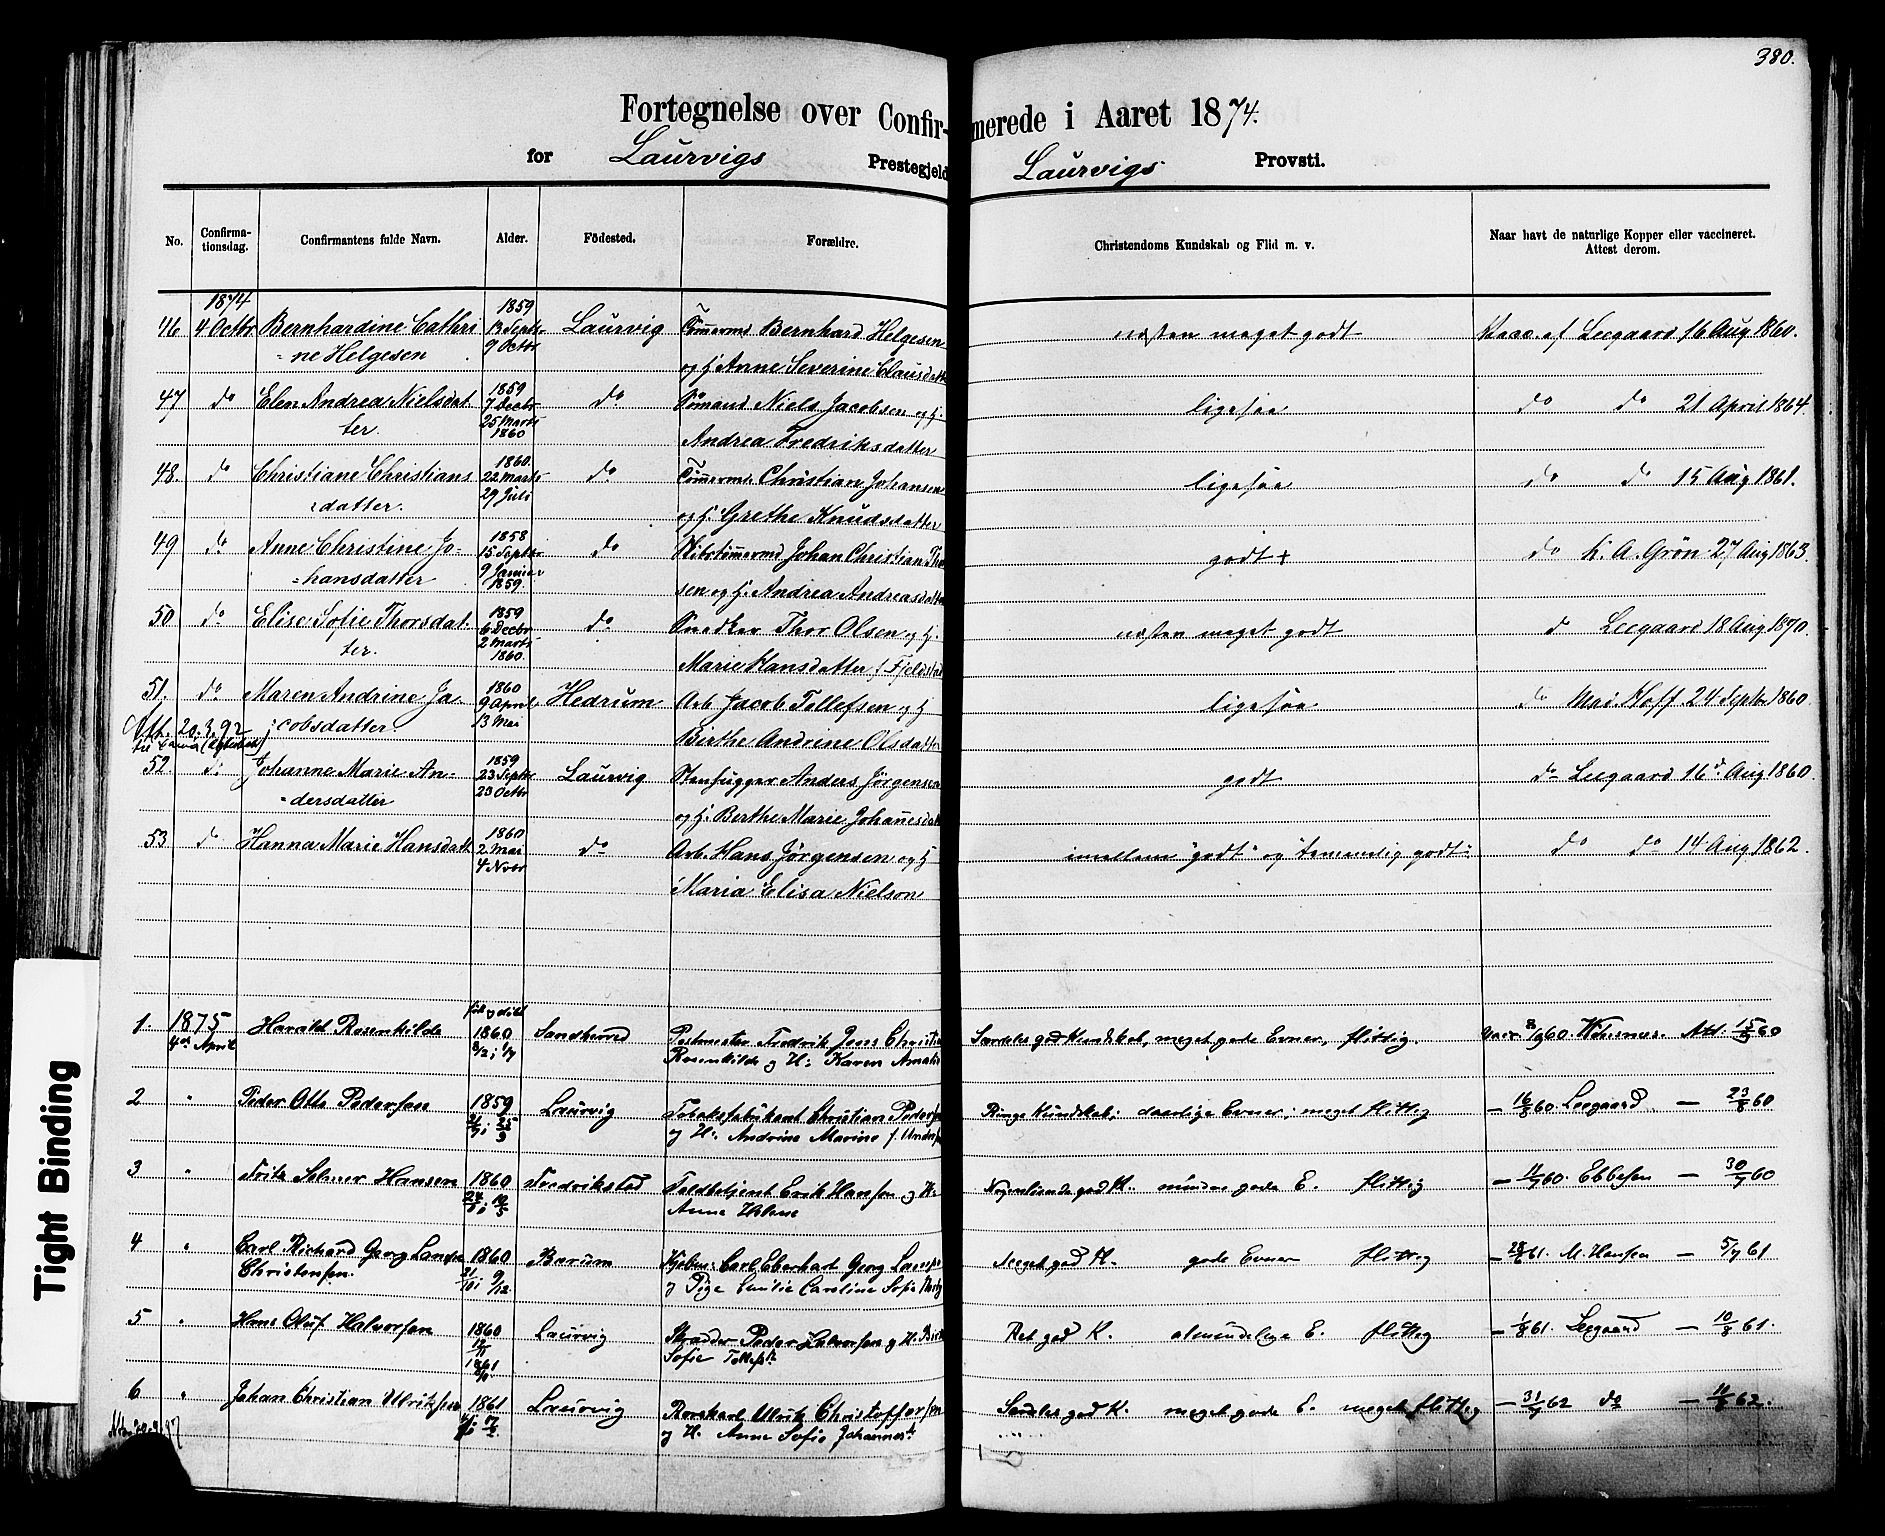 380.
Fortegnelse over Confirmerede i Aaret 1874.
for Laurvigs Prestegjeld Laurvigs Provsti.
No. Confirmationsdag. Confirmantens fulde Navn. Alder. Födested. Forældre. Christendoms Kundskab og Flid m. v. Naar havt de naturlige Kopper eller vaccineret. Attest derom.
1874 1859
46 4 Octbr Bernhardine Cathri 13 Septbr Laurvig Tömmermd Bernhard Helgesen næsten meget godt Vacc. af Leegaard 16 Aug 1860.
=ne Helgesen 9 Octbr og h. Anne Severine Clausdatt
47 do Elen Andrea Nielsdat 1859 7 Decbr do Sömand Niels Jacobsen og h. ligesaa do do 21 April 1864
ter. 25 Marts 1860 Andrea Fredriksdatter
48. do Christiane Christians 1860. 22 Marts do Tömmermd. Christian Johansen ligesaa do do 15 Aug 1861.
=datter. 29 Juli og h. Grethe Knudsdatter
49 do Anne Christine Jo- 1858 15 Septbr do Skibstömmermd Johan Christian godt + do K. A. Grön 27 Aug 1863.
=hansdatter 9 Januar 1859. sen og h. Andrea Andreasdatter
50 do Elise Sofie Thorsdat 1859 6 Decbr do Snedker Thor Olsen og h. næsten meget godt do Leegaard 18 Aug 1870.
ter. 2 Marts 1860. Marie Hansdatter f. Fjeldstad
51. do Maren Andrine Ja 1860 9 April Hedrum Arb. Jacob Tollefsen og h ligesaa do Hoff 24 Septbr 1860
Att. 20.3.92 cobsdatter. 13 Mai Birthe Andrine Olsdatter
52. do Johanne Marie An- 1859 23 Septbr Laurvig Stenhugger Anders Jörgensen godt do Leegaard 16 Aug 1860.
=dersdatter 23 Octbr og h. Berthe Marie Johannesdatt
53 do Hanna Marie Hansdatt 1860 2 Mai do Arb. Hans Jörgensen og h imellem "godt" og "temmelig godt" do do 14 Aug 1862.
4 Novbr Maria Elisa Nielson
1. 1875 Harald Rosenkilde 1860 Sandherred Postmester Fredrik Jens Christian Særdeles god Kundskab, meget gode Evner, flittig.
4de April Rosenkilde og H: Karen Amalie
2 " Peder Otto Pedersen 1859 Laurvig Tobaksfabrikant Christian Pedersen Ringe Kundskab; daarlige Evner; meget flittig – 16/8 60. Leegaard – 23/8 60
og H: Andrine Marine f.
3 " Fritz Selmer Hansen 1860 Fredriksted Toldbetjent Erik Hansen og H. Nogenlunde god K. mindre gode E. flittig – 11/7 60. Ebbesen – 30/7 60
Anne Helene
4 " Carl Richard Georg 1860 Bærum Carl Eberhart Georg Meget god K. gode Evner flittig 61. M. Hansen – 5/7 61
Christensen. 9/12 og Pige Emilie Caroline Sofie
5 " Hans Oluf Halvorsen 1860 Laurvig Skrædder Peder Halvorsen og H. Ret god K. almindelige E. flittig – 1/8 61. Leegaard – 10/8 61.
1861 Sofie
6 " Johan Christian Ulriksen 1861 Laurvig Ulrik Christoffersen Særdeles god K. meget gode E. meget flittig – 31/7 62 do 62.
og H. Anne Sofie Johannesd.
Tight Binding